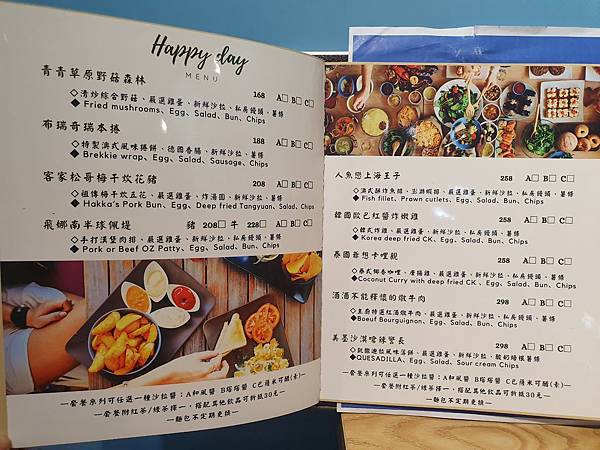 Happy day
MENU
青青草原野菇森林 168 A□ B□ C□
◇清炒綜合野菇、嚴選雞蛋、新鮮沙拉、私房饅頭、薯條
◆Fried mushrooms, Egg, Salad, Bun, Chips
布瑞哥瑞本捲 188 A□ B□ C□
◇特製澳式風味捲餅、德國香腸、新鮮沙拉、薯條
◆Brekkie wrap, Egg, Salad, Sausage, Chips
客家松哥梅干炊花豬 208 A□ B□ C□
◇祖傳梅干炊五花、嚴選雞蛋、炸湯圓、新鮮沙拉、薯條
◆Hakka's Pork Bun, Egg, Deep fried Tangyuan, Salad, Chips
飛娜南半球佩堤 豬 208□ 牛 228□ A□ B□ C□
◇手打漢堡肉排、嚴選雞蛋、新鮮沙拉、私房饅頭、薯條
◆Pork or Beef OZ Patty, Egg, Salad, Bun, Chips
—套餐系列可任選一種沙拉醬：A和風醬 B塔塔醬 C巴薩米可醋(素)—
—套餐附紅茶/綠茶擇一，搭配其他飲品可折抵30元—
—麵包不定期更換—
人魚戀上海王子 258 A□ B□ C□
◇澳式酥炸魚排、澎湖蝦排、嚴選雞蛋、新鮮沙拉、私房饅頭、薯條
◆Fish fillet, Prawn cutlets, Egg, Salad, Bun, Chips
韓國歐巴紅醬炸嫩雞 258 A□ B□ C□
◇韓式炸雞、嚴選雞蛋、新鮮沙拉、私房饅頭、薯條
◆Korea deep fried CK、Egg、Salad、Bun、Chips
泰國爺想卡哩親 258 A□ B□ C□
◇泰式椰奶咖哩、唐揚雞、嚴選雞蛋、新鮮沙拉、私房饅頭、薯條
◆Coconut Curry with deep fried CK 、Egg、Salad、Bun、Chips
酒酒不能釋懷的燉牛肉 298 A□ B□ C□
◇主廚特選紅酒燉牛肉、嚴選雞蛋、新鮮沙拉、私房饅頭、薯條
◆Boeuf Bourguignon、Egg、Salad、Bun、Chips
美墨沙漠嗆辣警長 298 A□ B□ C□
◇凱撒迪拉風味薄餅、嚴選雞蛋、新鮮沙拉、酸奶蟠椒薯條
◆QUESADILLA、Egg、Salad、Sour cream Chips
—套餐系列可任選一種沙拉醬：A和風醬 B塔塔醬 C巴薩米可醋(素)—
—套餐附紅茶/綠茶擇一，搭配其他飲品可折抵30元—
—麵包不定期更換—